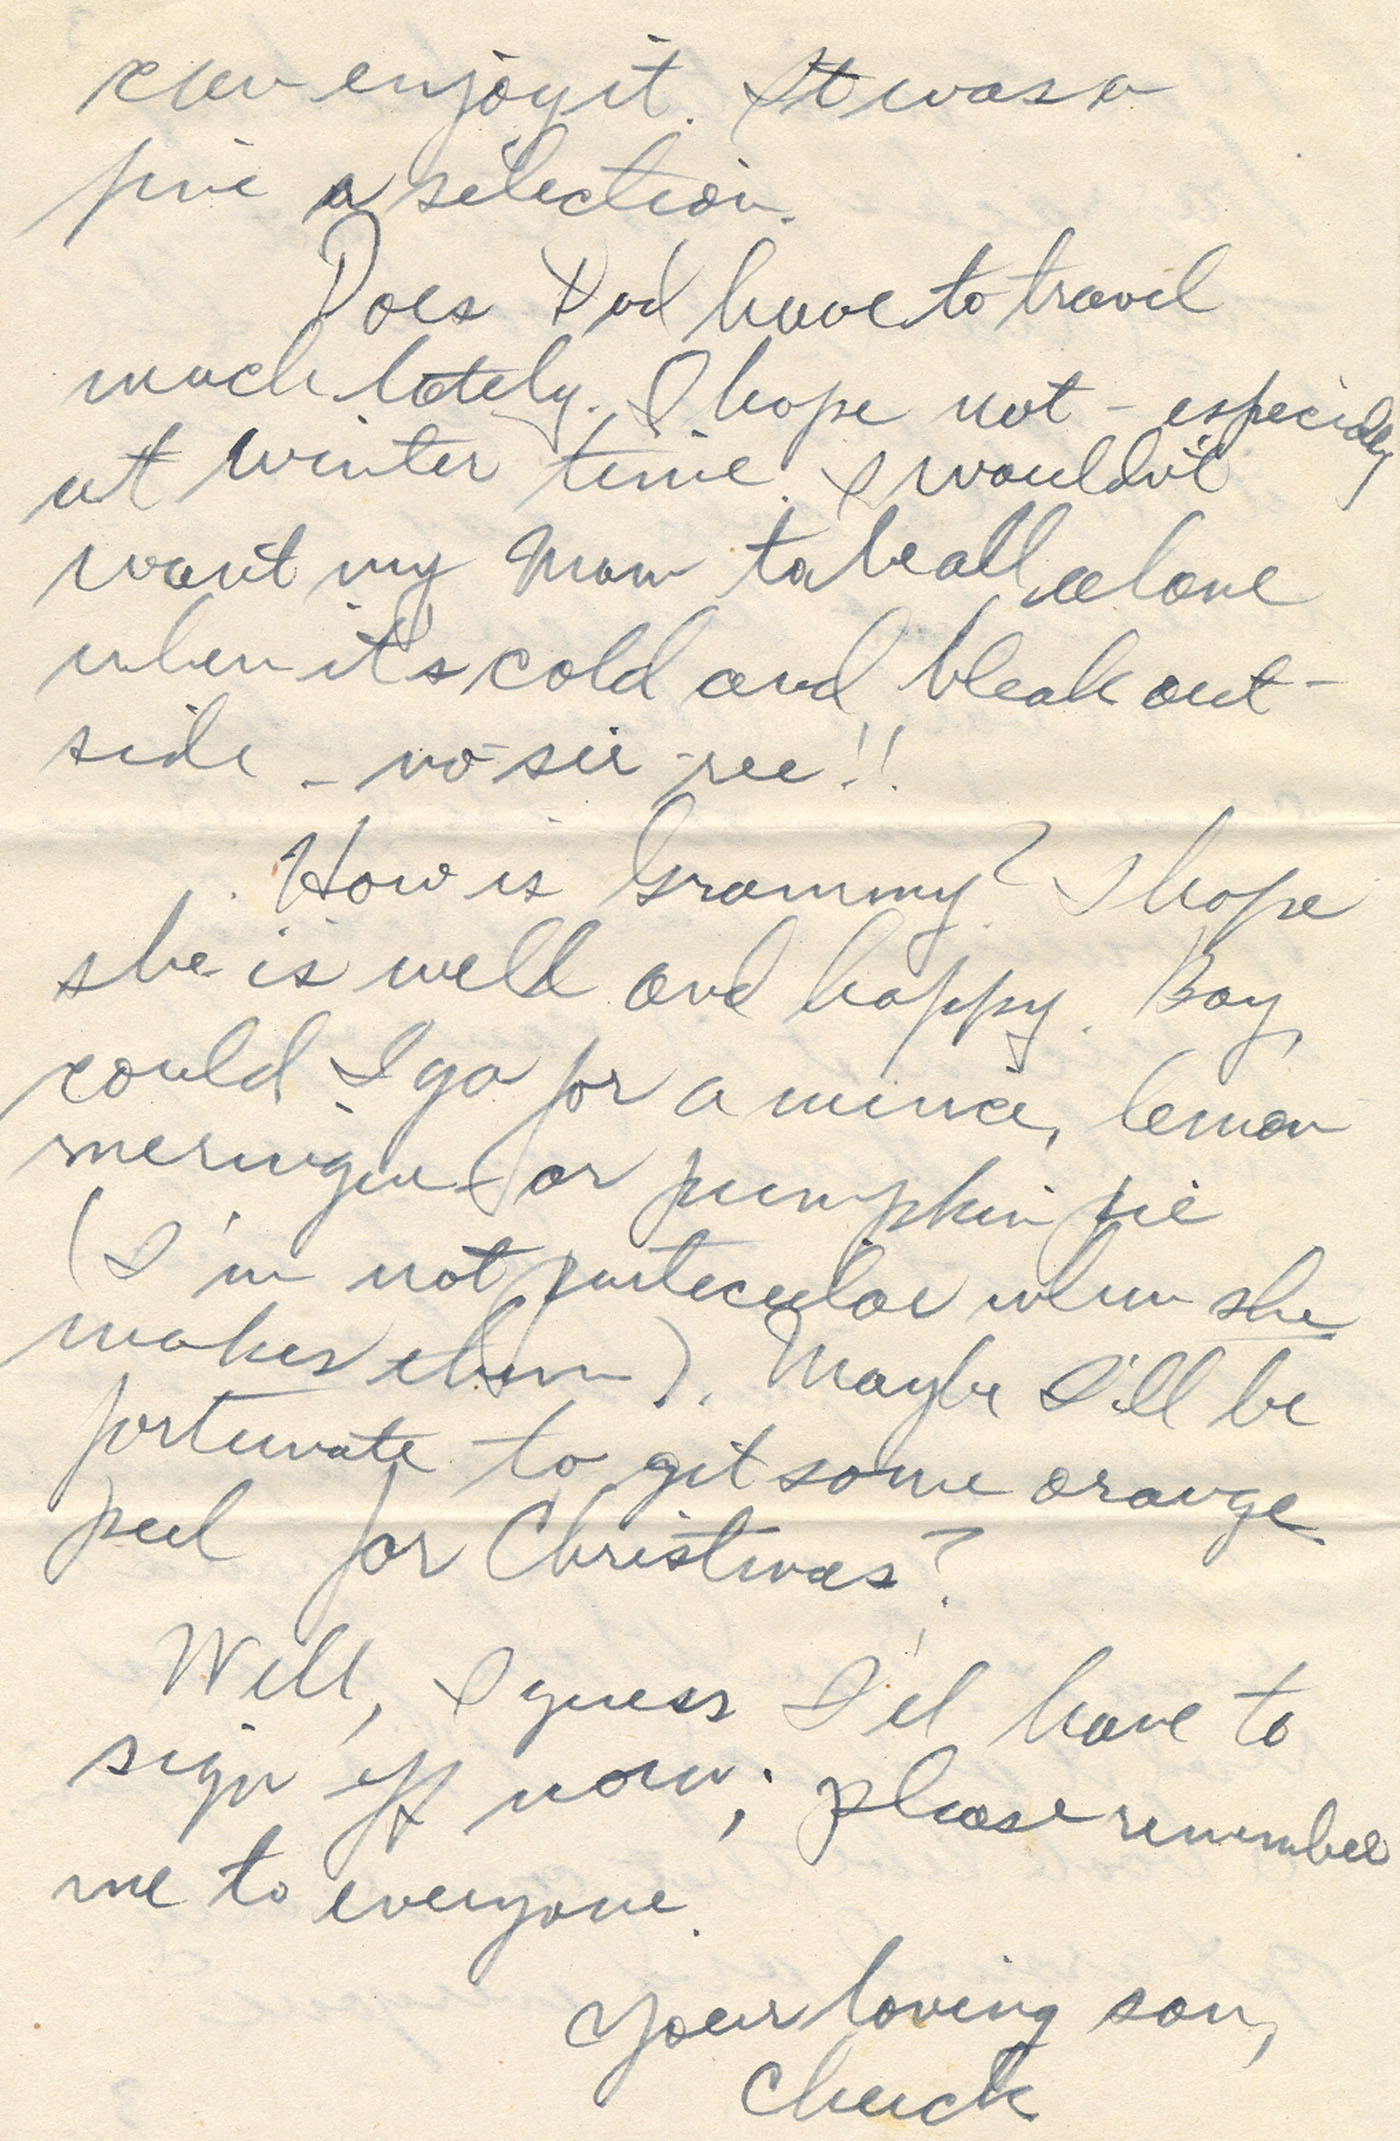 can enjoy it. It was a
fine a selection.
Does Dad have to travel
much lately. I hope not - especially
at winter time. I wouldn't
want my Mom to be all alone
when it's cold and bleak out-
side - no-sir-ree!!
How is Grammy? I hope
she is well and happy. Boy,
could I go for a mince, lemon
meringue or pumpkin pie
(I'm not particular when she
makes them). Maybe I'll be
fortunate to get some orange
peel for Christmas?
Well, I guess I'll have to
sign off now; please remember
me to everyone.
Your loving son,
Chuck